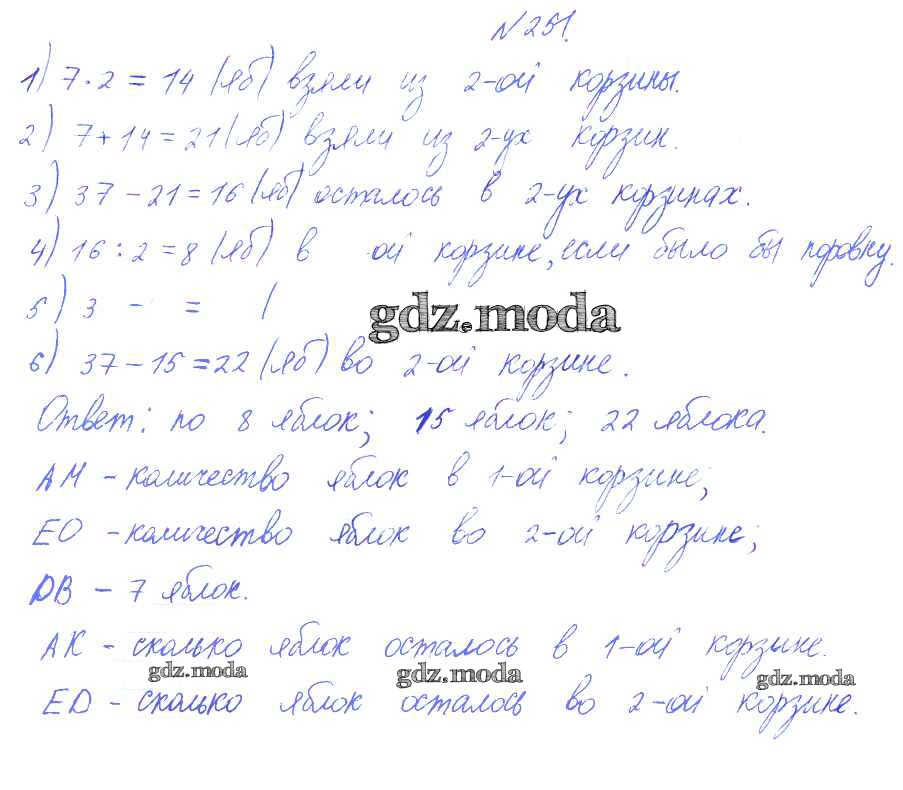 N 251.
1) 7 · 2 = 14 (яб) взяли из 2-ой корзины.
2) 7 + 14 = 21 (яб) взяли из 2-ух корзин.
3) 37 - 21 = 16 (яб) осталось в 2-ух корзинах.
4) 16 : 2 = 8 (яб) в -ой корзине, если было бы поровну.
5) 3 - = (
gdz.moda
6) 37 - 15 = 22 (яб) во 2-ой корзине.
Ответ: по 8 яблок; 15 яблок; 22 яблока.
АМ - количество яблок в 1-ой корзине;
ЕО - количество яблок во 2-ой корзине;
DB - 7 яблок.
АК - сколько яблок осталось в 1-ой корзине.
gdz.moda gdz.moda gdz.moda
ED - сколько яблок осталось во 2-ой корзине.